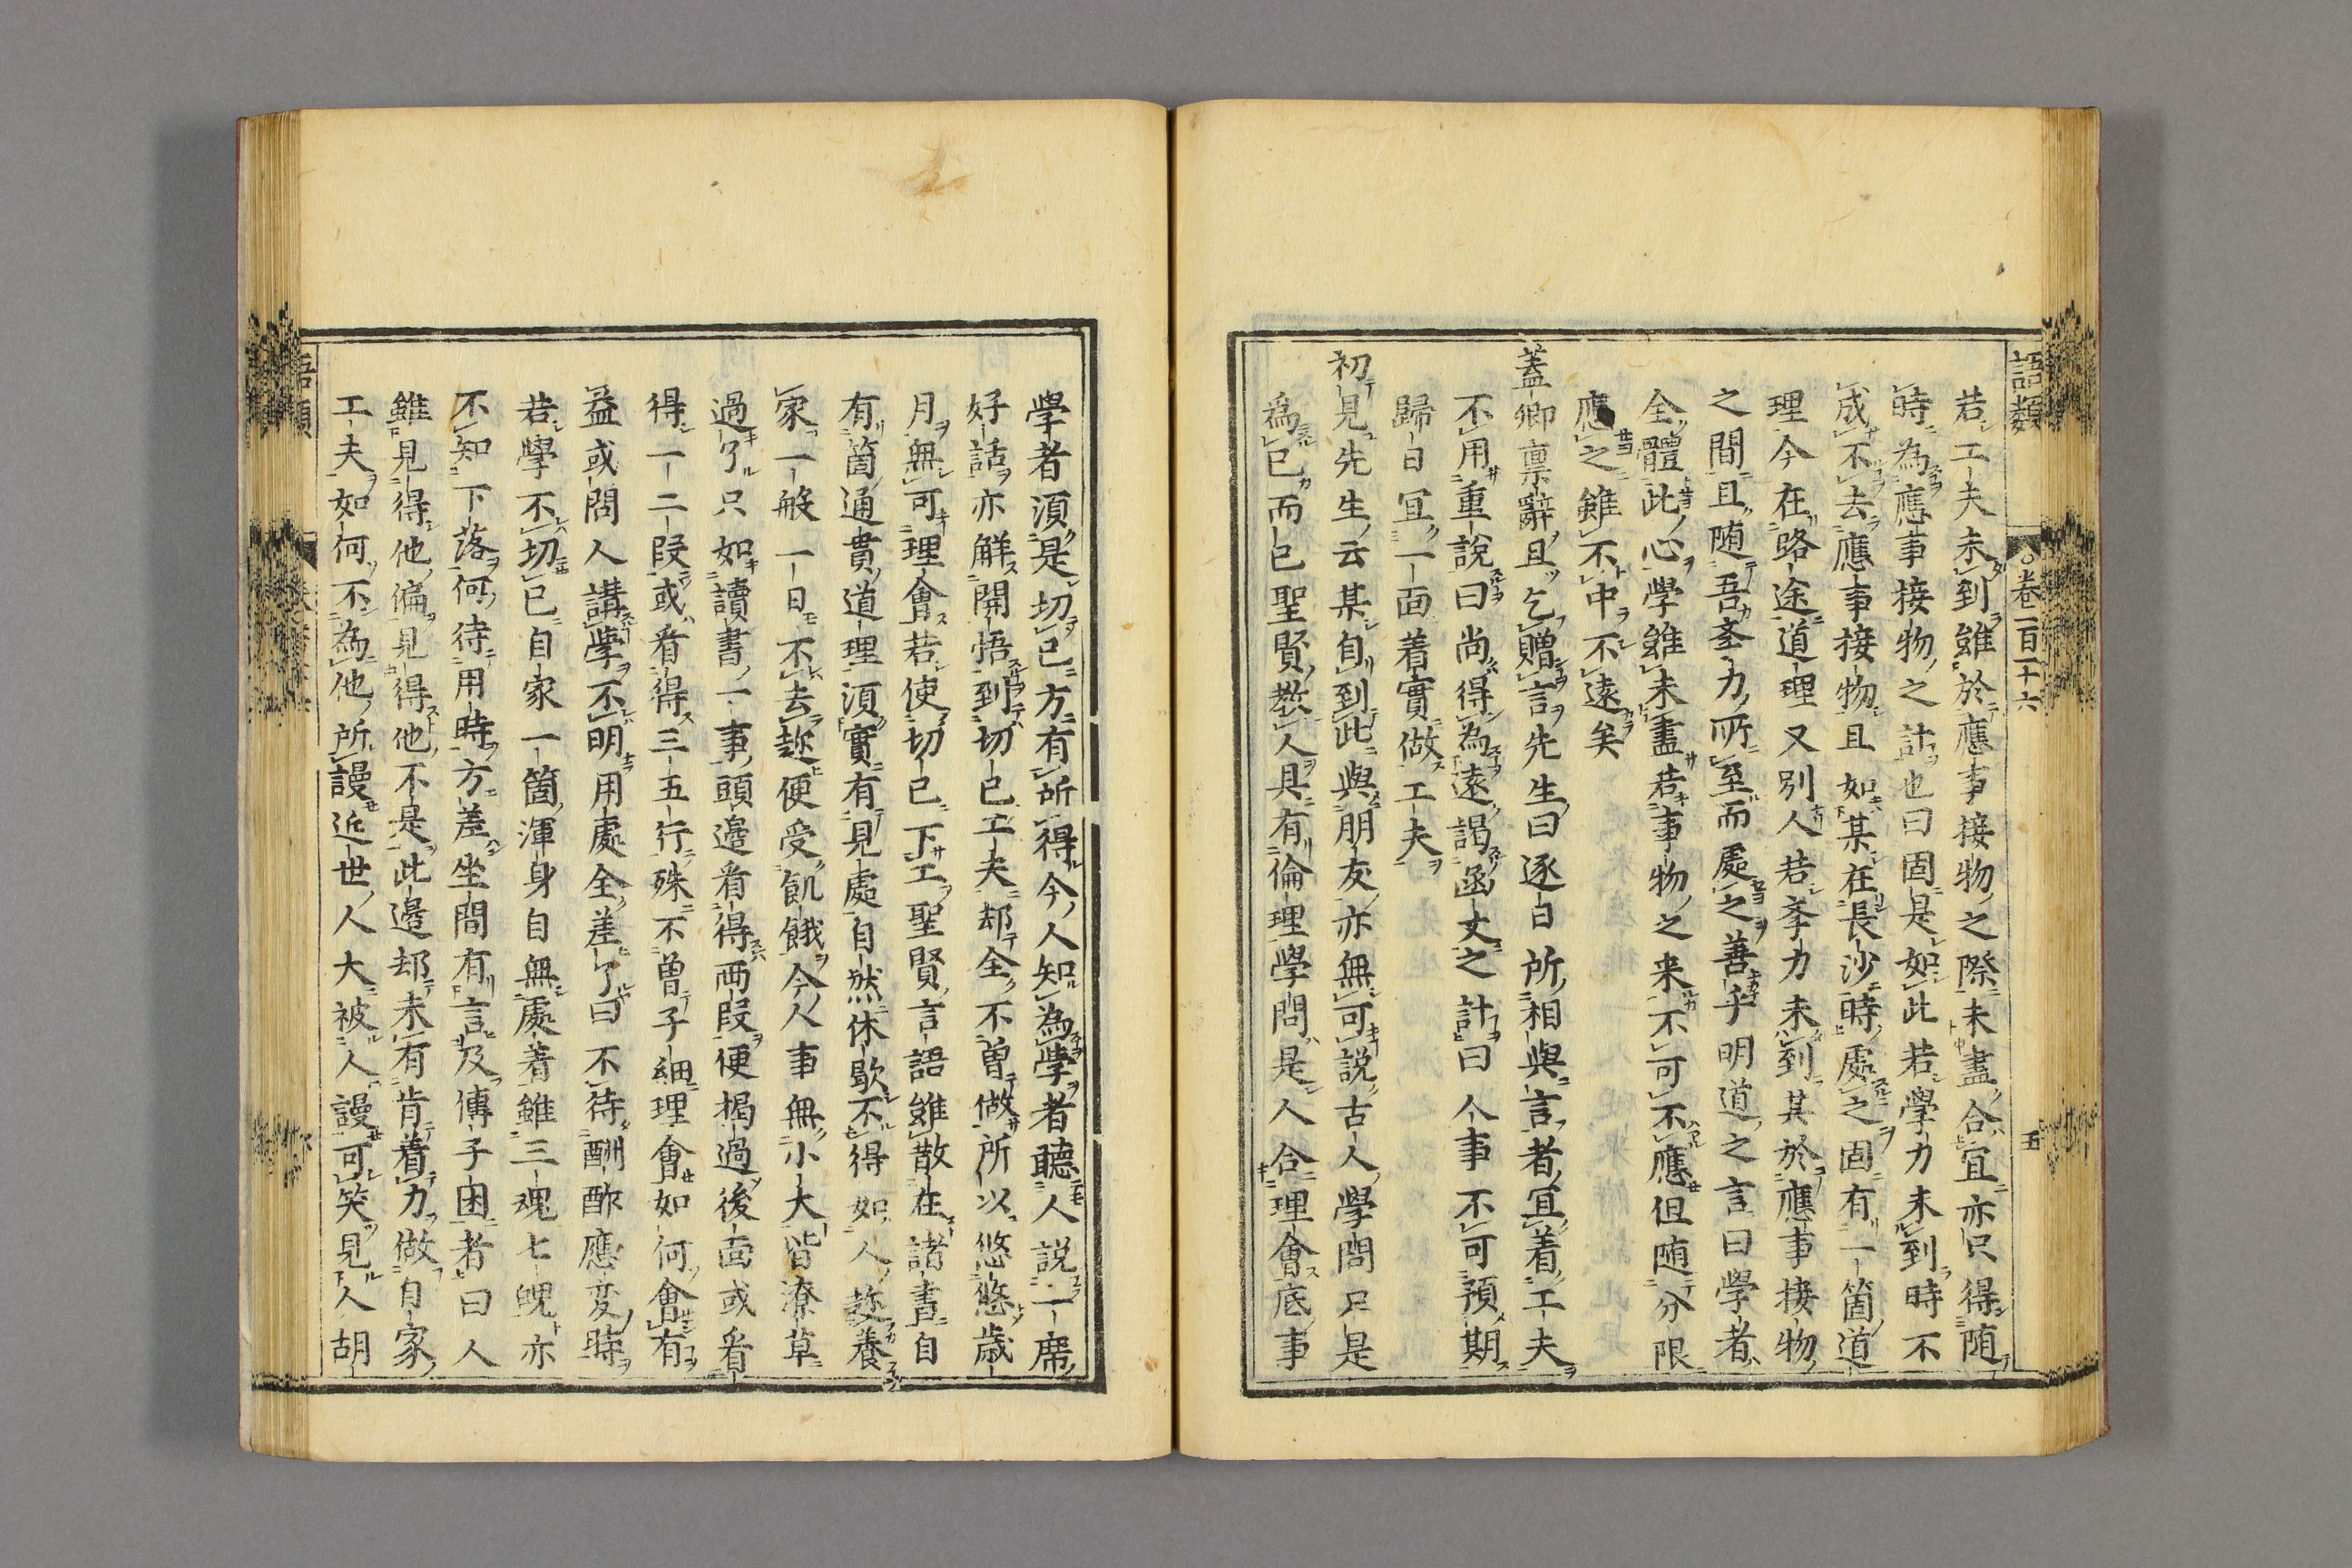 語類 卷一百十六 五
若工夫未到雖於應事接物之際未盡合宜亦只得随
時為應事接物之計也曰固是如此若學力未到時不
成不去應事接物且如某在長沙時處之固有一箇道
理今在路途道理又別人若李力未到其於應事接物
之間且随吾李力所至而處之善乎明道之言曰學者
全體此心學雖未盡若事物之来不可不應但随分限
應之雖不中不遠矣
蓋卿禀辭且乞贈言先生曰逐日所相與言者宜着工夫
不用重說曰尚得為遠謁函丈之計曰人事不可預期
歸日冝一面着實做工夫
初見先生云某自到此與朋友亦無可說古人學問只是
爲已而已聖賢教人具有倫理學問是人合理會底事
學者須是切已方有所得今人知為學者聽人説一席
好話亦觧開悟到切已工夫却全不曾做所以悠悠歳
月無可理會若使切已下工聖賢言語雖散在諸書自
有箇通貫道理須實有見處自然休歇不得如人趂養
家一般一日不去趂便受飢餓今人事無小大皆潦草
過了只如讀書一事頭邊看得兩段便揭過後面或看
得一二段或看得三五行殊不曾子細理會如何會有
益或問人講學不明用處全差了曰不待酬酢應変時
若學不切已自家一箇渾身自無處着雖三魂七魄亦
不知下落何待用時方差坐間有言及傅子困者曰人
雖見得他偏見得他不是此邊却未有肯着力做自家
工夫如何不為他所謾近世人大被人謾可笑見人胡
語類